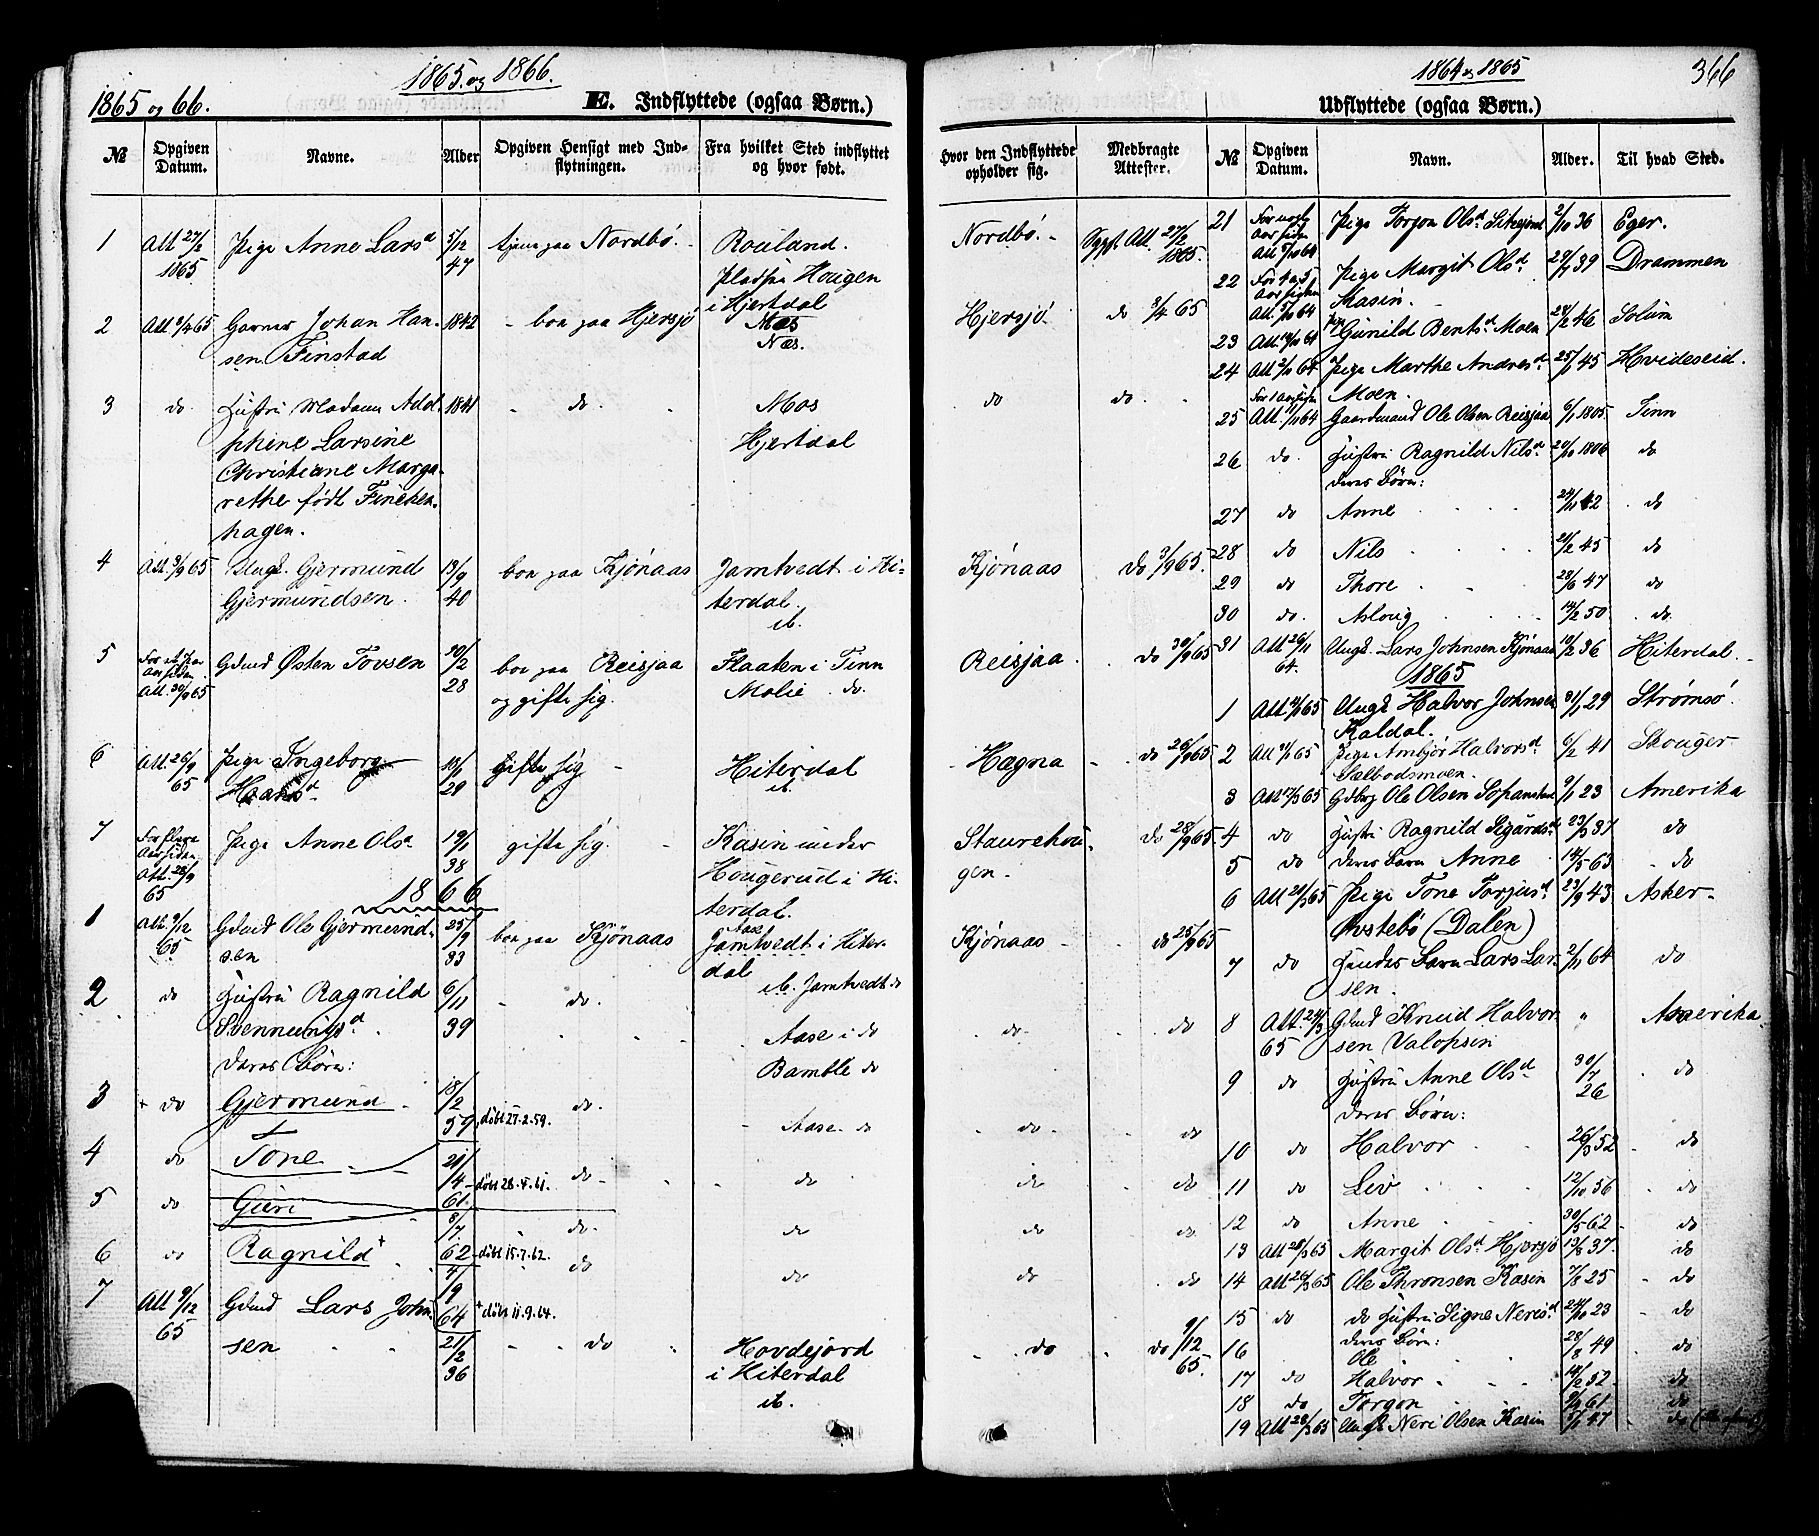 1865 og 1866.
1865 og 66.
E. Indflyttede (ogsaa Børn.)
№ Opgiven Datum. Navne. Alder Opgiven Hensigt med Indflytningen. Fra hvilket Sted indflyttet og hvor født.
1 Att 27/2 1865 Pige Anne Larsd 5/12 47 tjene paa Nordbö. Rouland.
Pladsen Hougen
i Hjertdal
2 Att 3/4 65 Garver Johan Han- 1842 - boe paa Hjersjö Mæs
sen Finstad Næs.
3 do. Hustru Madam Adol- 1841 - do. Mos
phine Larsine Hjertdal
Christiane Marga-
rethe født Fincken-
hagen.
4 Att. 3/9 65 Ungk. Gjermund 13/9 boe paa Kjönaas Jamtvedt i Hi-
Gjermundsen. 40 terdal.
ib.
5 For et Par Aar siden Att. 30/9 65 Gdmd Østen Tovsen 30/2 28 boe paa Reisjaa Flaaten i Tinn
og gifte sig. Molie do.
6 Att. 26/9 65 Pige Ingeborg 29 gifte sig - Hiterdal
Hansd. ib.
7 For flere Aar siden Att. 28/9 65 Pige Anne Olsd 19/1 38 gifte sig. Kasin under
Hougerud i Hi-
terdal.
1866
1 Att. 9/12 65 Gdmd Ole Gjermund- 25/9 33 boe paa Kjönaas Aase
sen Jamtvedt i Hiter-
dal
2 do Hustru Ragnild 6/11 39 - do. ib. Jamtvedt do
Svennungsd. Aase i do
Deres Børn: Bamble do
3 + do Gjermund. 18/2 59 døbt 27.2.59. do. Aase do
4 do Tone 21/4 61. døbt 28.4.61. do do
5 do Guri 8/7 do. do
6 do Ragnild + 62 døbt 15.7.62. do do
7 Att 9/12 65 Gdmd Lars John- 4/9 64 + døbt 11.9.64.
sen 21/2 36 do Hovdejord
i Hiterdal
ib.
1864 og 1865
366
Udflyttede (ogsaa Børn.)
Hvor den Indflyttede opholder sig. Medbragte Attester. № Opgiven Datum. Navn. Alder. Til hvad Sted.
Nordbö. - Att. 27/2 1865. 21 For nogle Aar siden Att 5/10 64 Pige Torgon Olsd. 2/10 36 Eger.
22 For 4 a 5 Aar siden Att. 5/10 64 Pige Margit Olsd. 39 Drammen
Masin.
Hjersjö do 3/4 65 23 Att. 64 Pige Gunild Bentsd. Moen 24/2 46 Solum
24 Att 2/11 64 Pige Marthe Andresd. 25/1 45 Hvideseid.
Moen.
do do. 25 Att. 64 Gaardmand Ole Olsen Reisjaa 6/1 1805 Tinn
26 do. Hustru Ragnild Nilsd. 20/10 1806 do
deres Børn:
27 do Anne 24/11 42 do
Kjönaas Do 3/9 65. 28 do Nils 21/2 45 do
29 do Thore 28/6 47 do
30 do. Asloug 14/2 50 do
Reisjaa. do 30/9 65 31 Att 26/11 64. Ungk. Lars Johnsen Kjönaas 10/2 36 Hiterdal.
1865
1 Att. 65 Ungk Halvor Johnsen 31/1 29 Strömsö
Kaldal.
Hægna - do 26/9 65 2 Att 65 Pige Ambjör Halvorsd. 6/2 41 Skouger
Sælbodsmoen.
3 Att 17/3 65 Gdbrg Ole Olsen 9/11 23 Amerika
Staurehou- do 28/9 65 4 do Hustru Ragnild Sigurdsd. 23/3 37 do
gen. 5 do deres Barn Anne 14/5 63 do
6 Att 65 Pige Tone Torjusd. 23/9 43 Asker
Østebö (Dalen)
Kjönaas do 25/9 65 7 do Hendes Barn Lars Lar- 2/11 64 do
sen.
do. do 8 Att. 24/3 65 Gdmd Knud Halvor- " Amerika.
sen Valopsin
9 do Hustru Anne Olsd 30/7 26 do
deres Børn:
do. do 10 do Halvor 26/3 52 do
do do 11 do Liv 12/10 56 do
do do 12 do Anne 30/5 62 do
13 Att 28/3 65 Margit Olsd. Hjersjö 13/8 37. do
do do 14 Att 26/3 65 Ole Thronsen Kasin 7/8 25 do
15 do do Hustru Signe Nerisd 24/10 23 do
do do 9/12 65. 16 deres Børn: Ole 28/8 49 do
17 do Halvor 14/2 52 do
18 do Torgon 61 do
19 Att 28/3 65 Ungk Neri Olsen Kasin 47 do